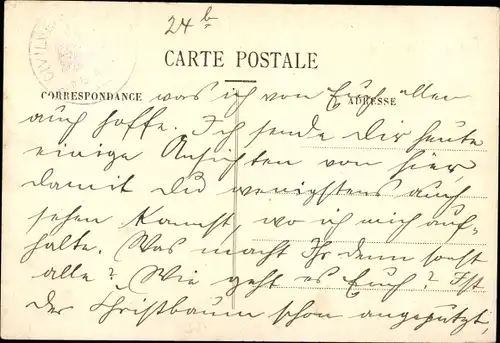 24b
CIVIL
CARTE POSTALE
CORRESPONDANCE
ADRESSE
was ich von Euch allen
auch hoffe. Ich sende Dir heute
einige Ansichten von hier
damit Du wenigstens auch
sehen kannst, wo ich mich auf-
halte. Was macht Ihr denn sonst
alle? Wie geht es Euch? Ist
der Christbaum schon angeputzt,